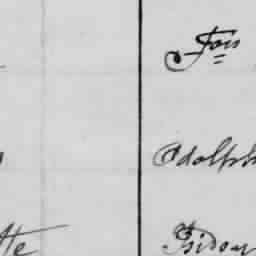 Fois
Adolph
tte Isidor